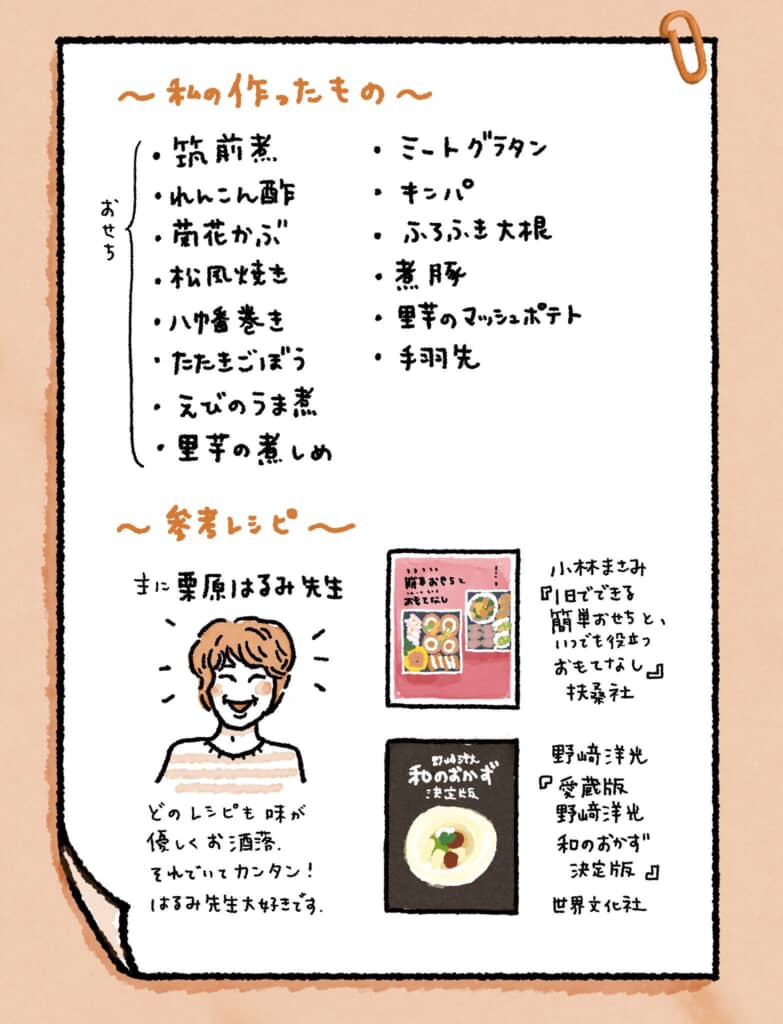 ～私の作ったもの～
おせち
・筑前煮
・れんこん酢
・菊花かぶ
・松風焼き
・八幡巻き
・たたきごぼう
・えびのうま煮
・里芋の煮しめ
・ミートグラタン
・キンパ
・ふろふき大根
・煮豚
・里芋のマッシュポテト
・手羽先
～参考レシピ～
主に栗原はるみ先生
どのレシピも味が
優しくお洒落.
それでいてカンタン!
はるみ先生大好きです.
簡単おせちと
おもてなし
小林まさみ
『1日でできる
簡単おせちと、
いつでも役立つ
おもてなし』
扶桑社
野﨑洋光
和のおかず
決定版
野﨑洋光
『愛蔵版
野﨑洋光
和のおかず
決定版』
世界文化社